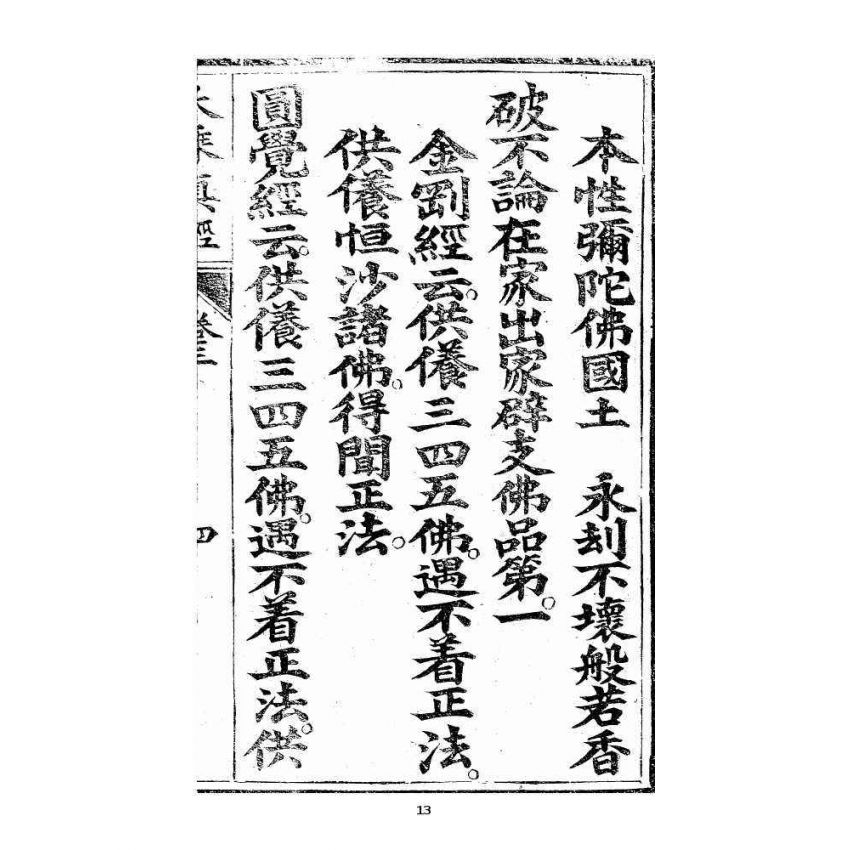 本性彌陀佛國土　永刦不壞般若香
破不論在家出家辟支佛品第一。
金剛經云。供養三四五佛。遇不着正法。
供養恒沙諸佛。得聞正法。
圓覺經云。供養三四五佛。遇不着正法。供
大乘真經
卷三
四
13